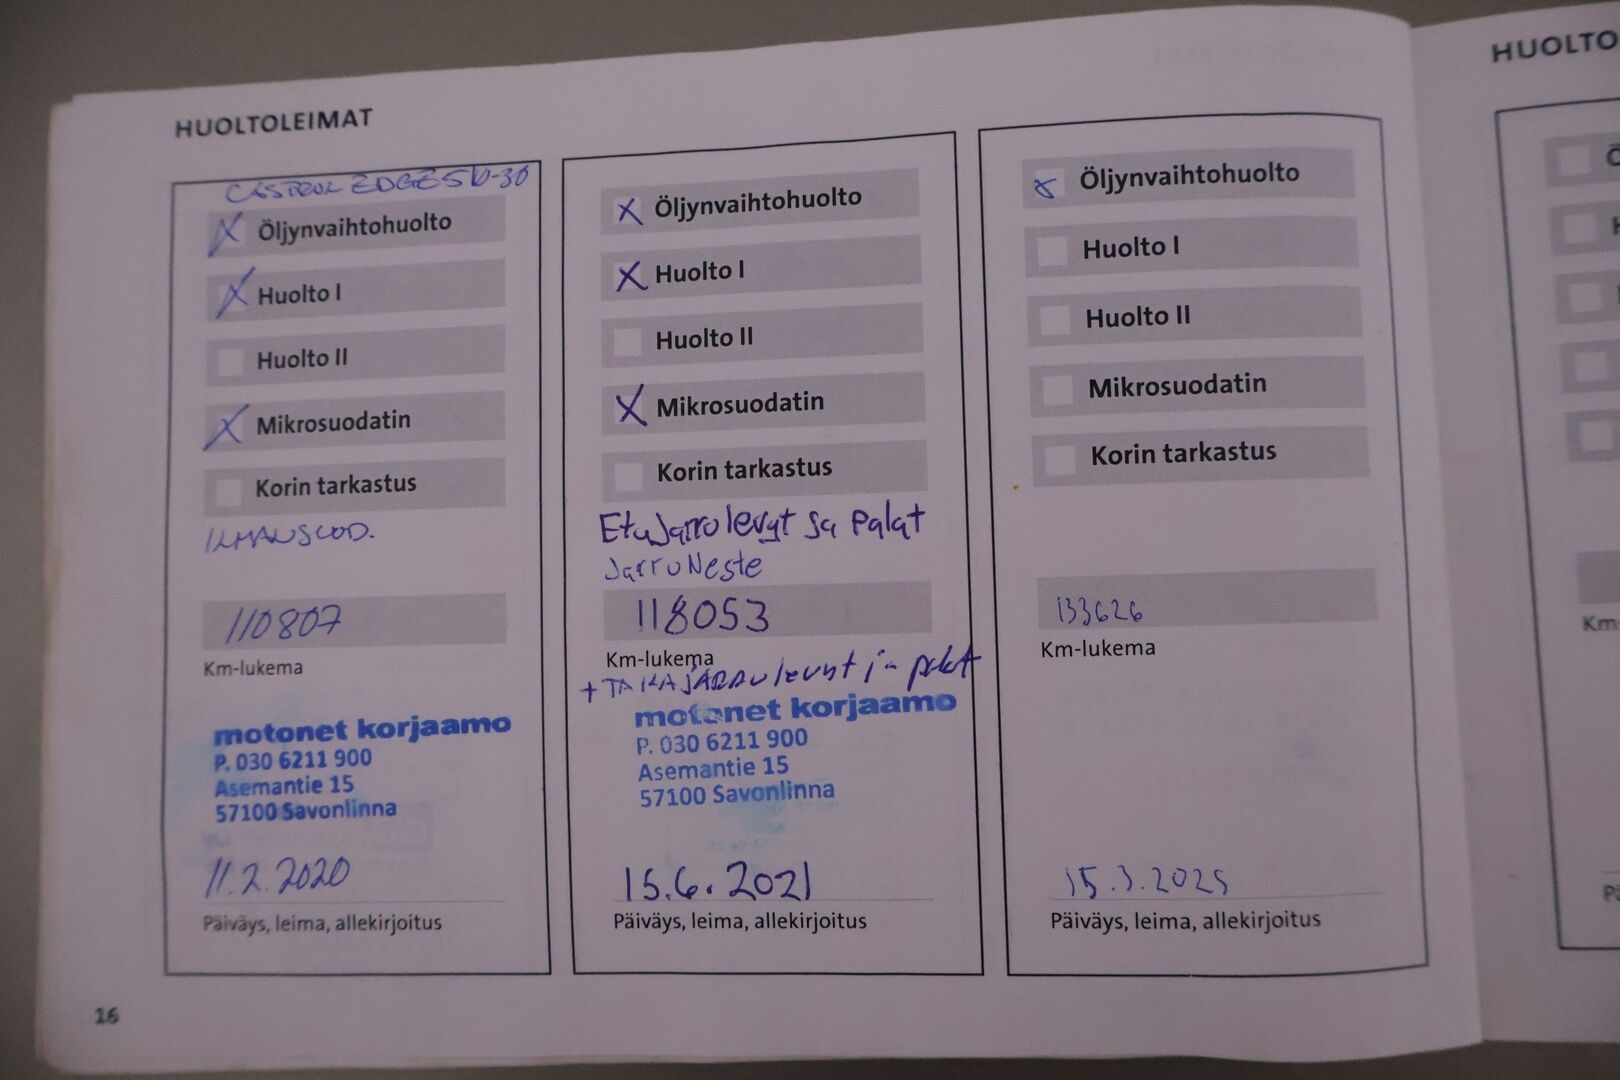 HUOLTOLEIMAT
CASTROL EDGE 5W-30
X Öljynvaihtohuolto
X Huolto I
Huolto II
X Mikrosuodatin
Korin tarkastus
ILMANSUOD.
110807
Km-lukema
motonet korjaamo
P. 030 6211 900
Asemantie 15
57100 Savonlinna
11.2.2020
Päiväys, leima, allekirjoitus
X Öljynvaihtohuolto
X Huolto I
Huolto II
X Mikrosuodatin
Korin tarkastus
EtuJarrolevyt ja Palat
JarruNeste
118053
Km-lukema
+ TAKAJARRUlevyt ja palat
motonet korjaamo
P. 030 6211 900
Asemantie 15
57100 Savonlinna
15.6.2021
Päiväys, leima, allekirjoitus
x Öljynvaihtohuolto
Huolto I
Huolto II
Mikrosuodatin
Korin tarkastus
133626
Km-lukema
15.3.2025
Päiväys, leima, allekirjoitus
16
HUOLTO
Ö
Km-